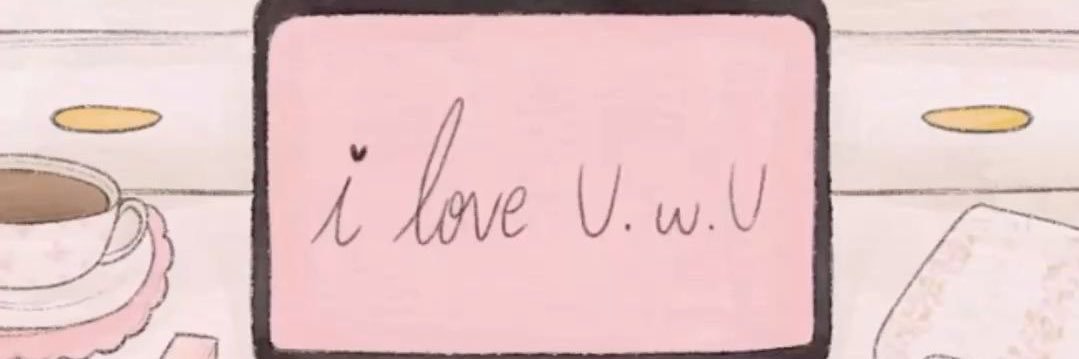 i love U.w.U